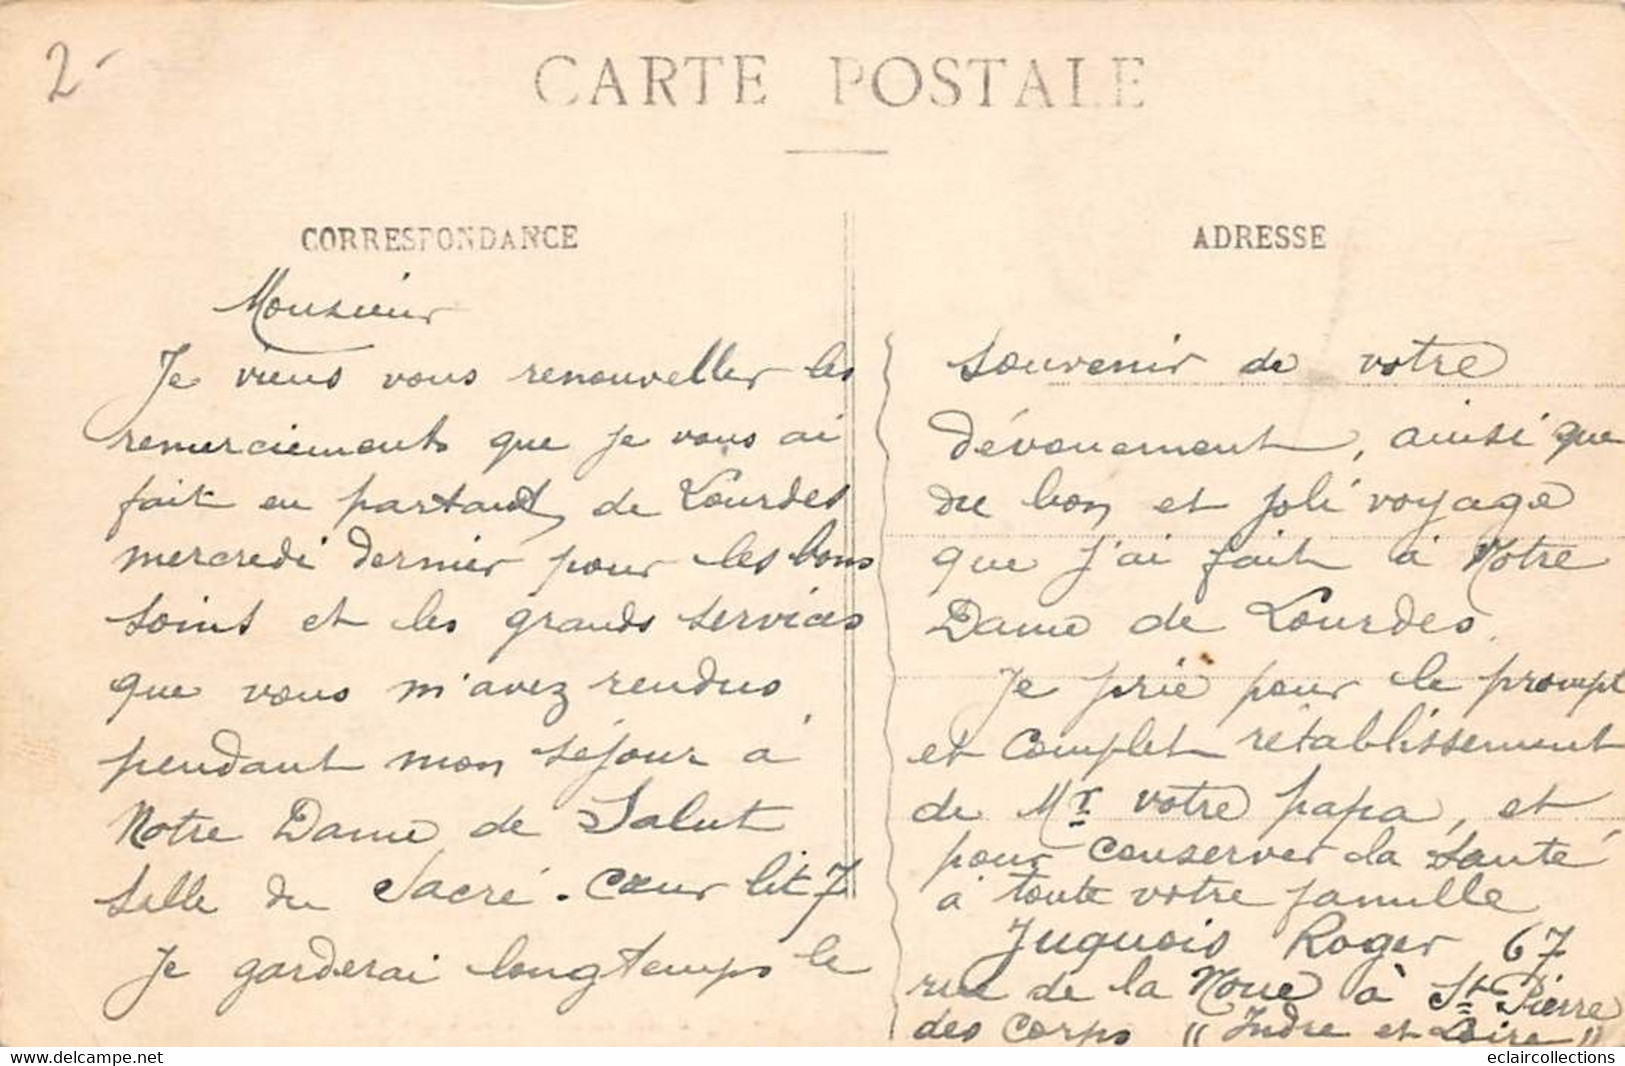 2-
CARTE POSTALE
CORRESPONDANCE
Monsieur
Je viens vous renouveller les
remerciements que je vous ai
fait en partant, de Lourdes
mercredi dernier pour les bons
soins et les grands services
que vous m'avez rendus
pendant mon séjour à
Notre Dame de Salut
salle du Sacré-Cœur lit 7
Je garderai longtemps le
ADRESSE
souvenir de votre
dévouement, ainsi que
du bon et joli voyage
que j'ai fait à Notre
Dame de Lourdes.
Je prie pour le prompt
et complet rétablissement
de Mr votre papa, et
pour conserver la santé
à toute votre famille
Juquois Roger 67
rue de la Noue à St Pierre
des Corps "Indre et Loire"
eclaircollections